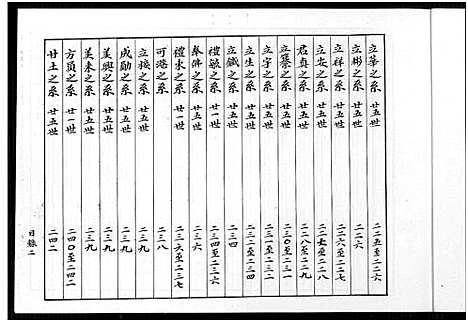 立華之系 廿五世 二二五至二二六
立彬之系 廿五世 二二六
立祥之系 廿五世 二二六至二二七
立安之系 廿五世 二二七至二二八
君真之系 廿五世 二二八至二二九
立燊之系 廿五世 二三〇至二三一
立宇之系 廿五世 二三一至二三二
立生之系 廿五世 二三二至二三四
立鐵之系 廿五世 二三四
禮敏之系 廿一世 二三四至二三六
奉佛之系 廿五世 二三六
禮永之系 廿一世 二三六至二三七
可港之系 二三八
立接之系 廿五世 二三九
成勛之系 廿五世 二三九
美興之系 廿五世 二三九
美來之系 廿五世 二三九
方員之系 廿一世 二四〇至二四二
廿土之系 廿五世 二四二
目錄二